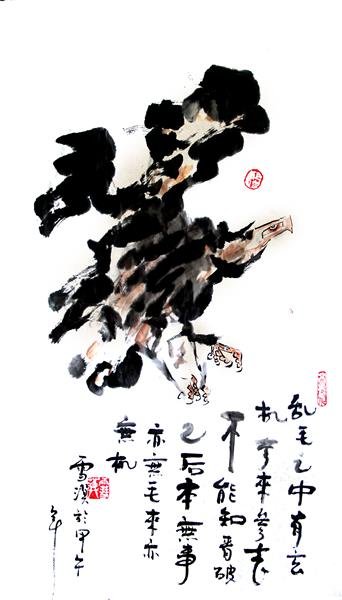 乱毛之中有玄
机來参
不能知看破
之后本無事
亦無毛來亦
無机
雪於甲午
年